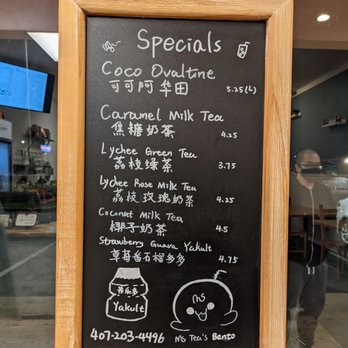 Specials
Coco Ovaltine
可可阿华田 5.25 (L)
Caramel Milk Tea
焦糖奶茶 4.25
Lychee Green Tea
荔枝绿茶 3.75
Lychee Rose Milk Tea
荔枝玫瑰奶茶 4.25
Coconut Milk Tea
椰子奶茶 4.5
Strawberry Guava Yakult
草莓番石榴多多 4.75
养乐多
Yakult
MS
407-203-4496
Ms Tea's Bento